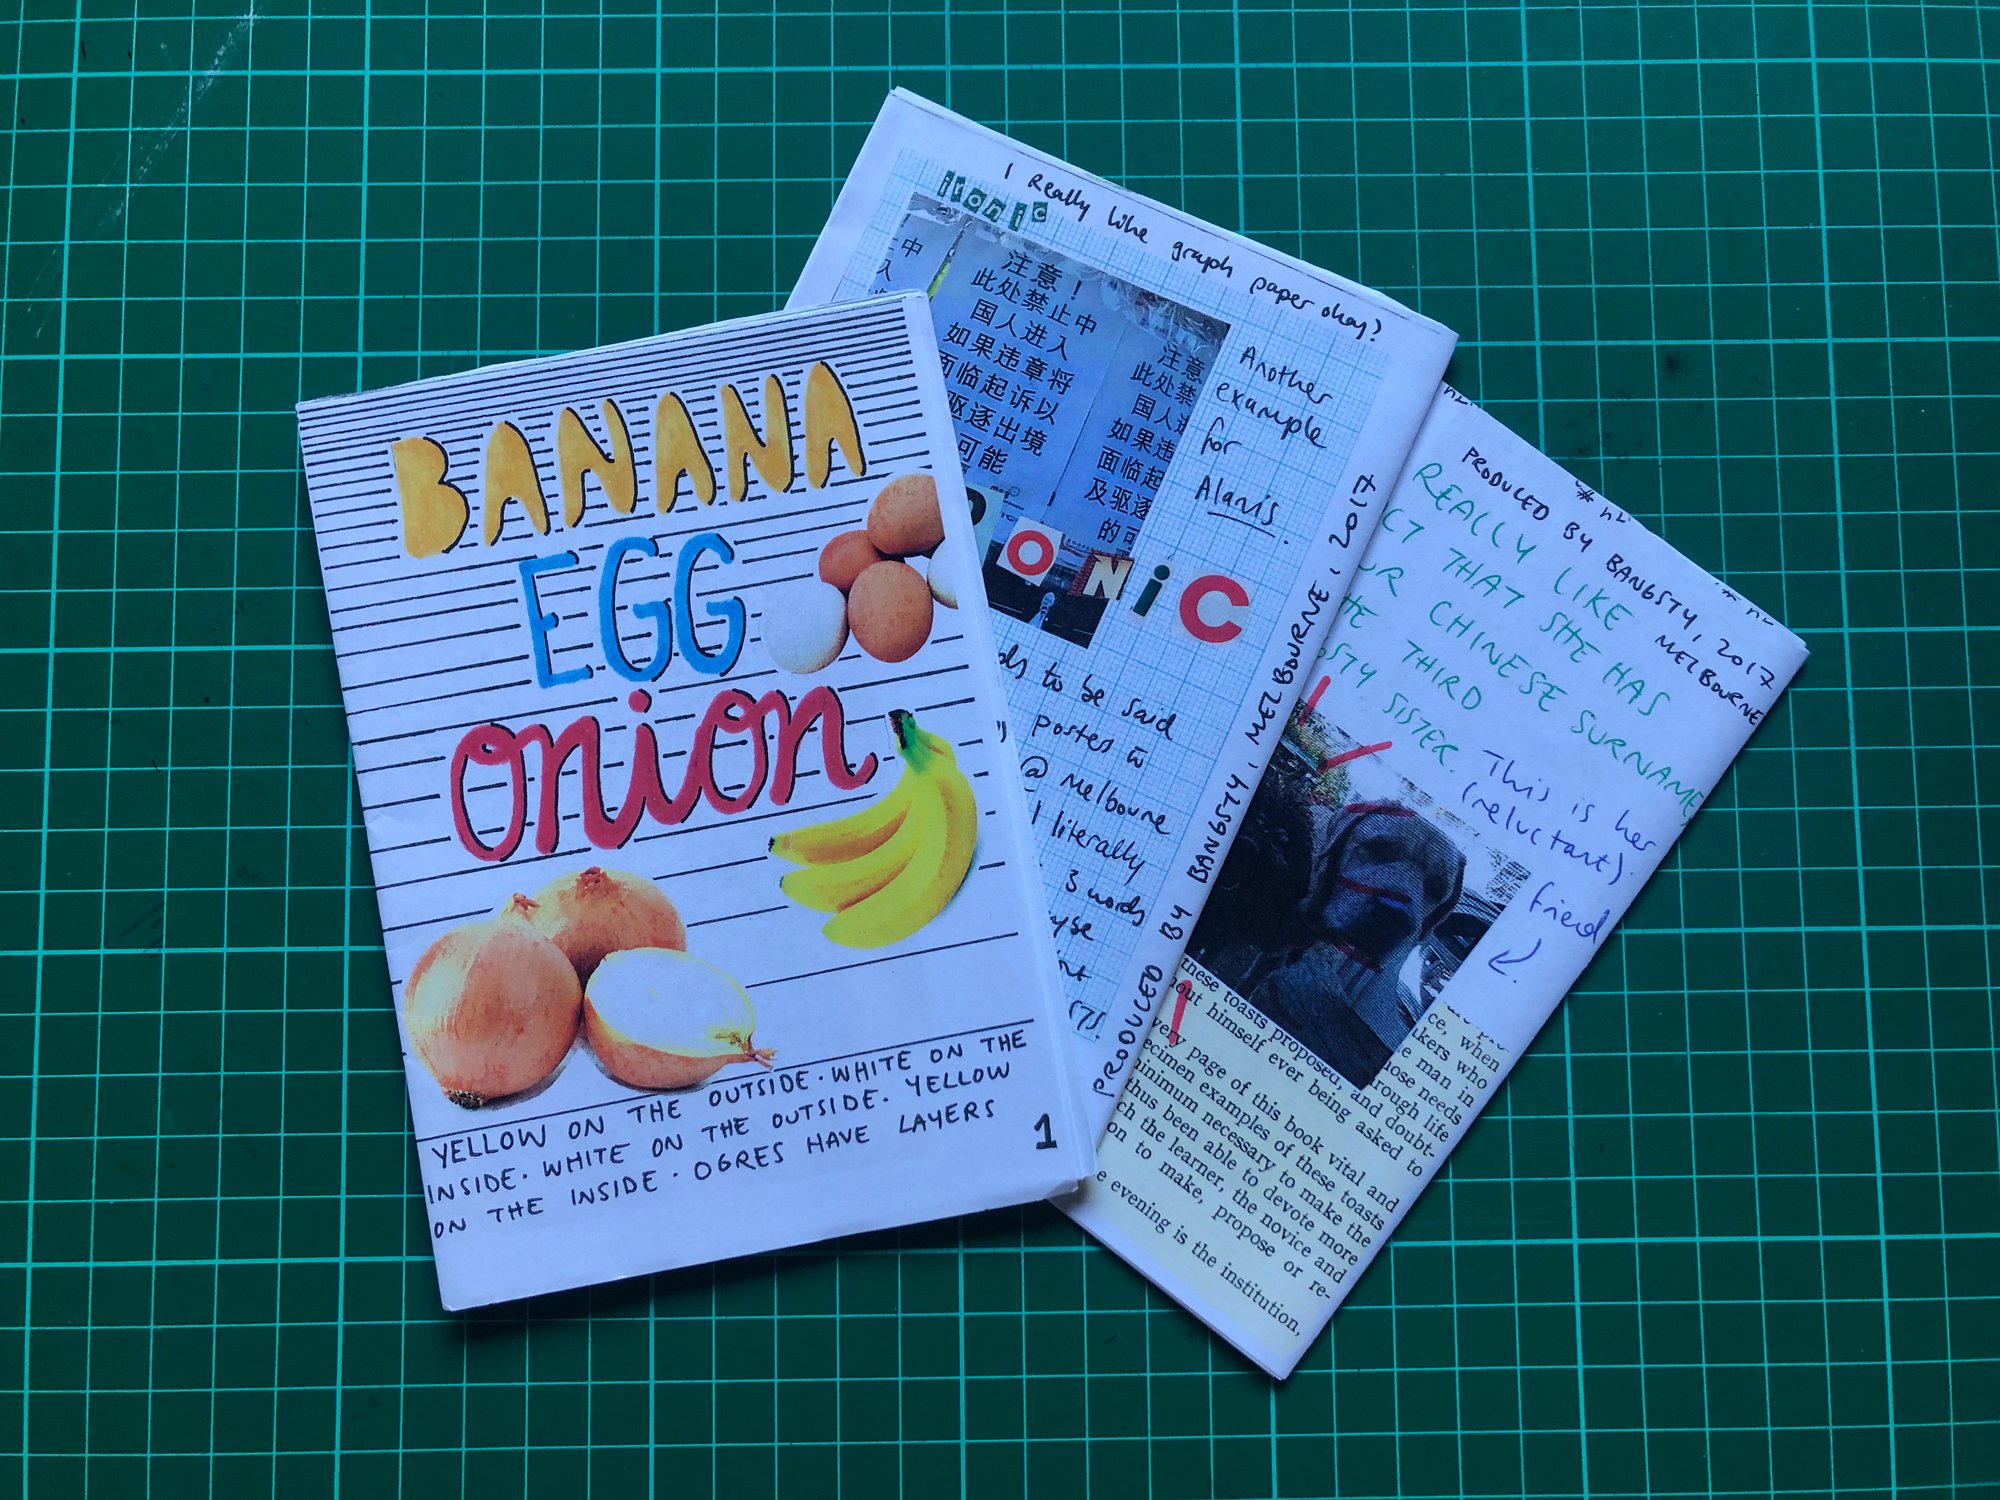 BANANA
EGG
onion
YELLOW ON THE OUTSIDE. WHITE ON THE
INSIDE. WHITE ON THE OUTSIDE. YELLOW
ON THE INSIDE. OGRES HAVE LAYERS
1
I Really like graph paper okay?
ironic
注意!
此处禁止中
国人进入
如果违章将
面临起诉以
驱逐出境
可能
中
入
注意
此处禁
国人进
如果违
面临起
及驱逐
的可
Another
example
for
Alanis.
ONiC
to be said
posters to
@ Melbourne
I literally
3 words
PRODUCED BY BANGSTY, MELBOURNE, 2017
PRODUCED BY BANGSTY, 2017
MELBOURNE
REALLY LIKE
CT THAT SHE HAS
UR CHINESE SURNAME
HE THIRD
GSTY SISTER.
This is her
(reluctant).
friend
these toasts proposed, and doubt-
hout himself ever being asked to
very page of this book vital and
ecimen examples of these toasts
minimum necessary to make the
thus been able to devote more
ch the learner, the novice and
on to make, propose or re-
e evening is the institution,
ce, when
akers who
e man in
hose needs
rough life